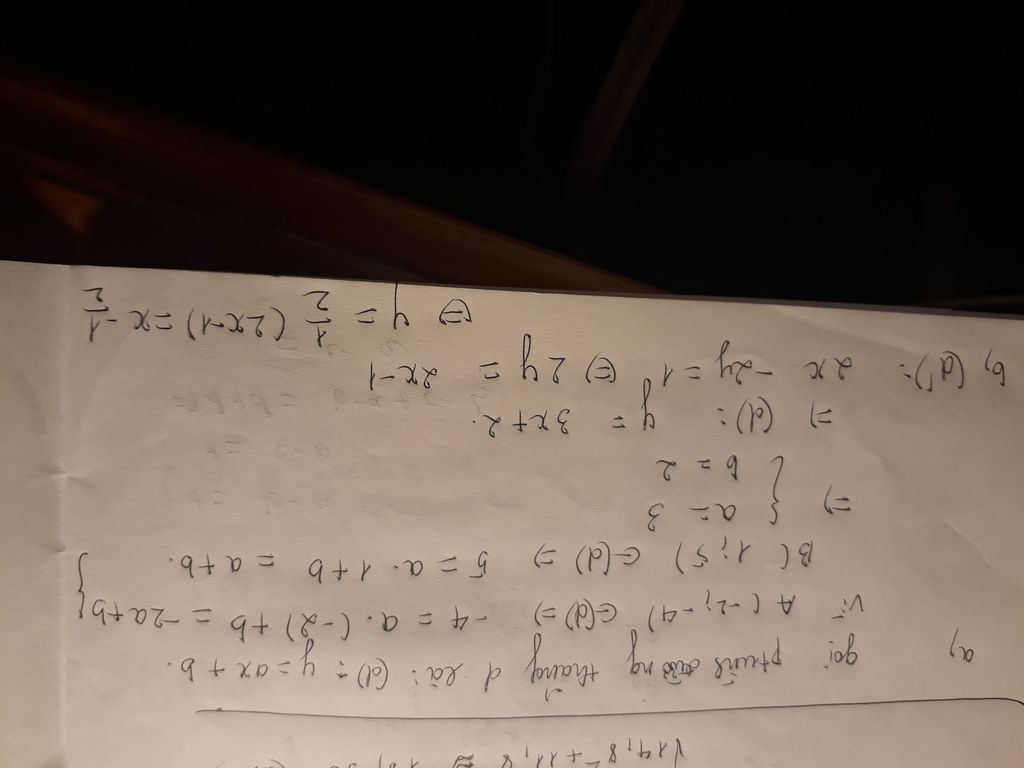 √14,8² + 11,8 ≈
a, gọi ptrình đường thẳng d là: (d): y = ax + b.
Vì A(-2; -4) ∈ (d) => -4 = a. (-2) + b = -2a + b }
B(1; 5) ∈ (d) => 5 = a. 1 + b = a + b.
=> { a = 3
b = 2
=> (d): y = 3x + 2.
b, (d'): 2x - 2y = 1 (=) 2y = 2x - 1
(=) y = 1/2 (2x - 1) = x - 1/2